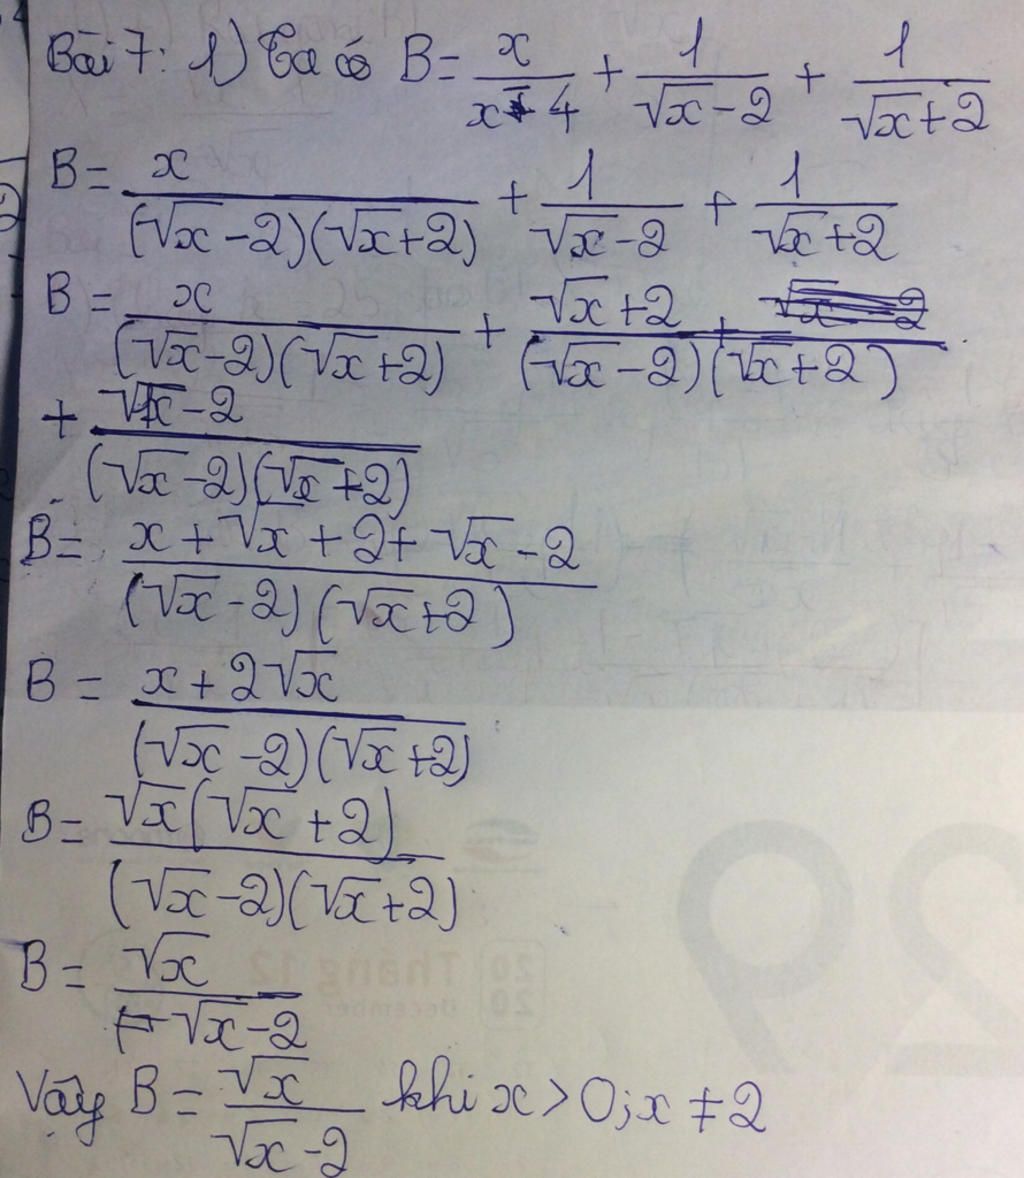 Bài 7: 1) Ta có B = x/(x - 4) + 1/(√x - 2) + 1/(√x + 2)
B = x/((√x - 2)(√x + 2)) + 1/(√x - 2) + 1/(√x + 2)
B = x/((√x - 2)(√x + 2)) + (√x + 2)/((√x - 2)(√x + 2))
+ (√x - 2)/((√x - 2)(√x + 2))
B = (x + √x + 2 + √x - 2)/((√x - 2)(√x + 2))
B = (x + 2√x)/((√x - 2)(√x + 2))
B = √x(√x + 2)/((√x - 2)(√x + 2))
B = √x/(√x - 2)
Vậy B = √x/(√x - 2) khi x > 0; x ≠ 2
29
20 20 Tháng 12
December